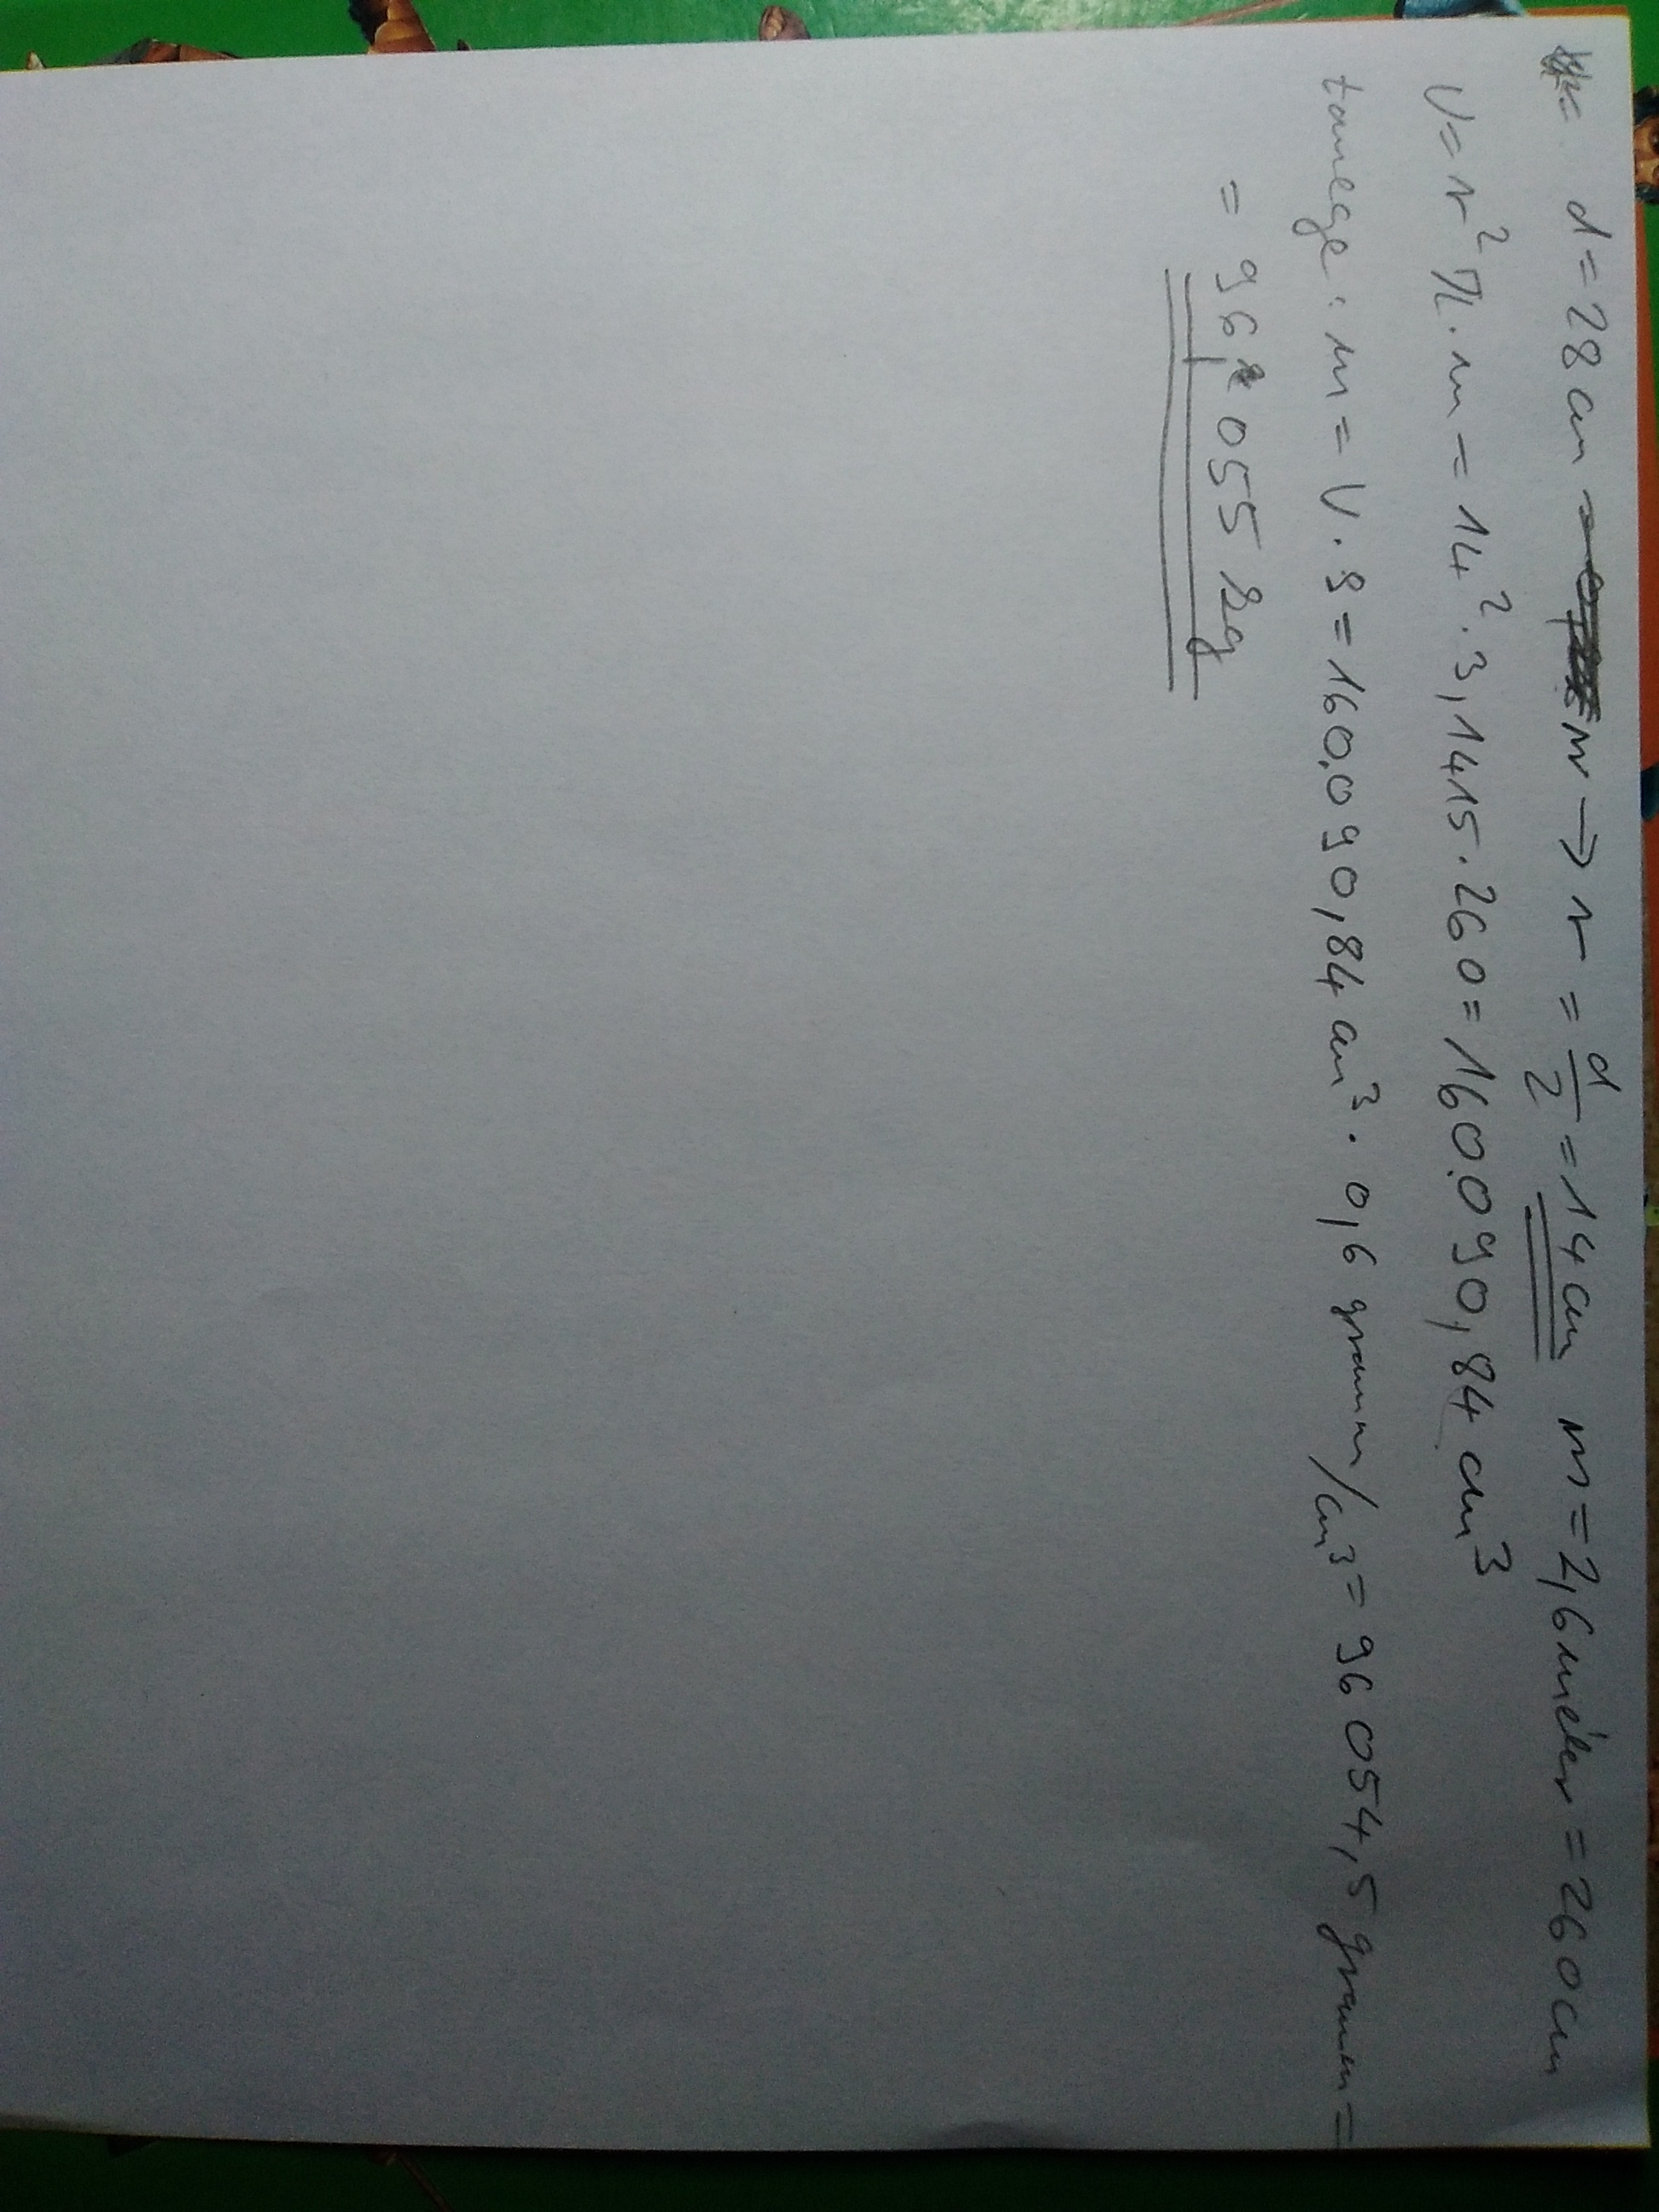 d = 28 cm → r = d/2 = 14 cm m = 2,6 méter = 260 cm
V = r² π · m = 14² · 3,1415 · 260 = 160.090,84 cm³
tömege: m = V · ρ = 160.090,84 cm³ · 0,6 gramm/cm³ = 96 054,5 gramm =
= 96,055 kg